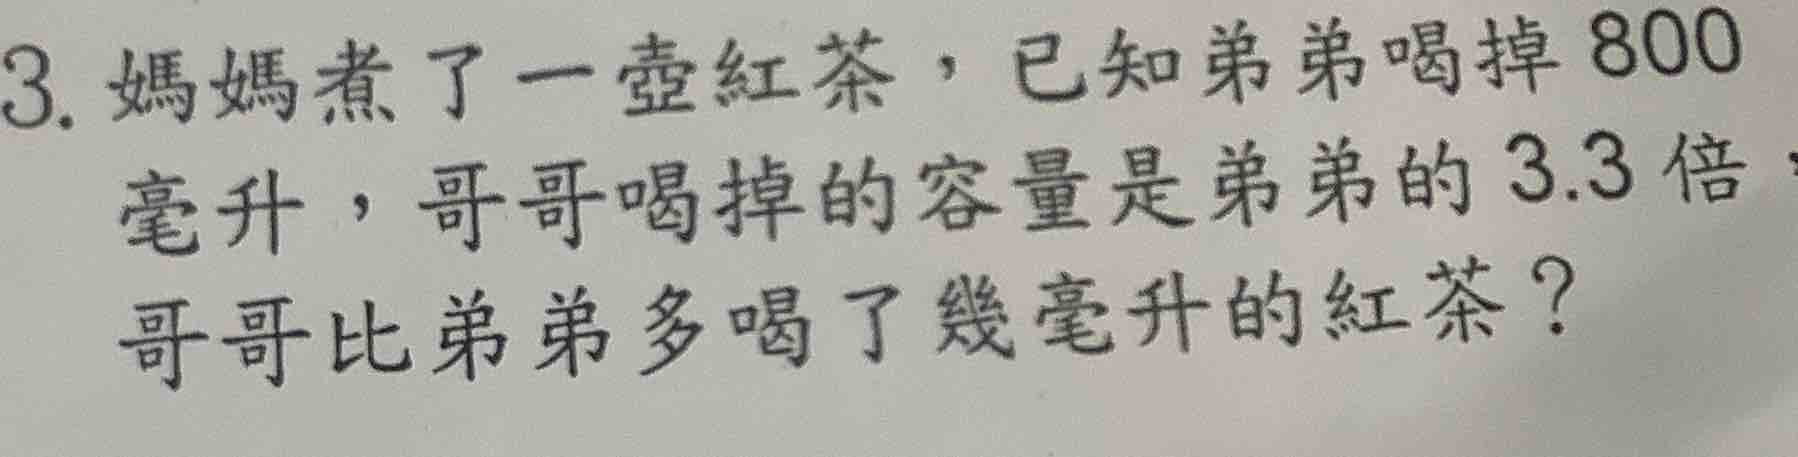 3. 媽媽煮了一壺紅茶，已知弟弟喝掉 800
毫升，哥哥喝掉的容量是弟弟的 3.3 倍，
哥哥比弟弟多喝了幾毫升的紅茶？